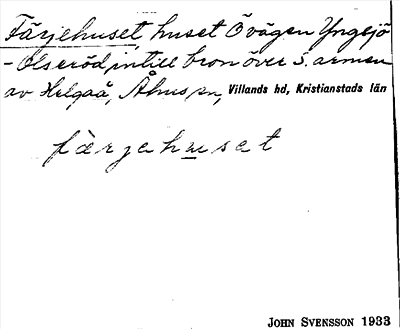 Färjehuset, huset Ö vägen Yngsjö
- Olseröd, intill bron över S. armen
av Helgeå, Åhus sn, Villands hd, Kristianstads län
färjehuset
JOHN SVENSSON 1933